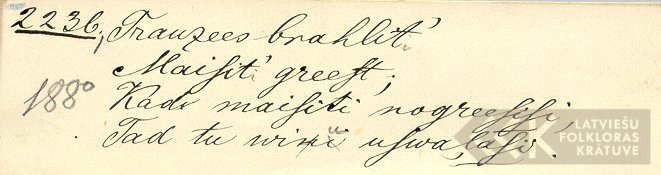 2236, Trauzees brahlit'
Maisit' greest,
1880 Kad maisiti nogreesisi,
Tad tu winu uswalasi.
LATVIEŠU
FOLKLORAS
KRĀTUVE